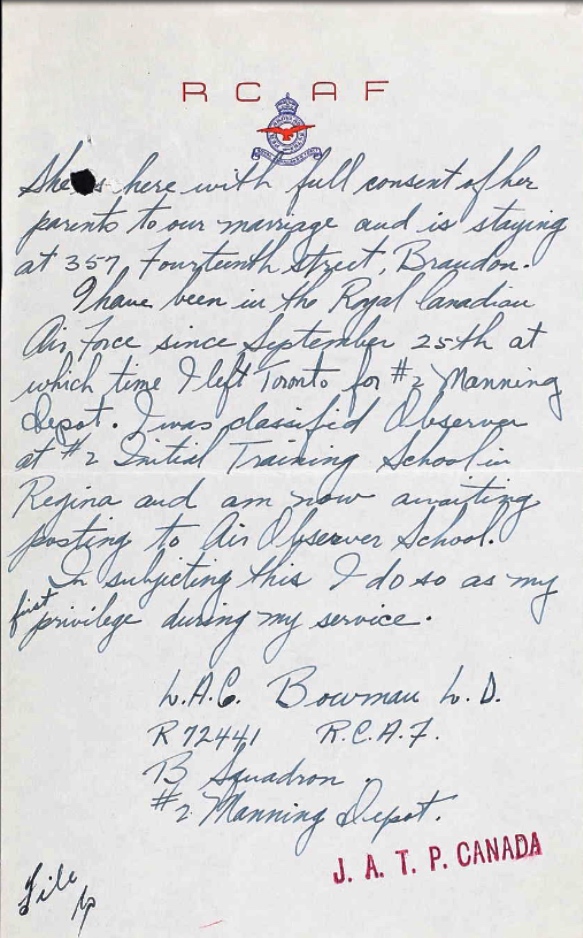 R C A F
She is here with full consent of her
parents to our marriage and is staying
at 357 Fourteenth street, Brandon.
I have been in the Royal Canadian
Air Force since September 25th at
which time I left Toronto for #2 Manning
Depot. I was classifid Observer
at #2 Initial Training School in
Regina and am now awaiting
posting to Air Observer School.
In subjecting this I do so as my
first privilege during my service.
L.A.C. Bowman L. D.
R 72441 R.C.A.F.
B Squadron.
#2 Manning Depot.
J. A. T. P. CANADA
File